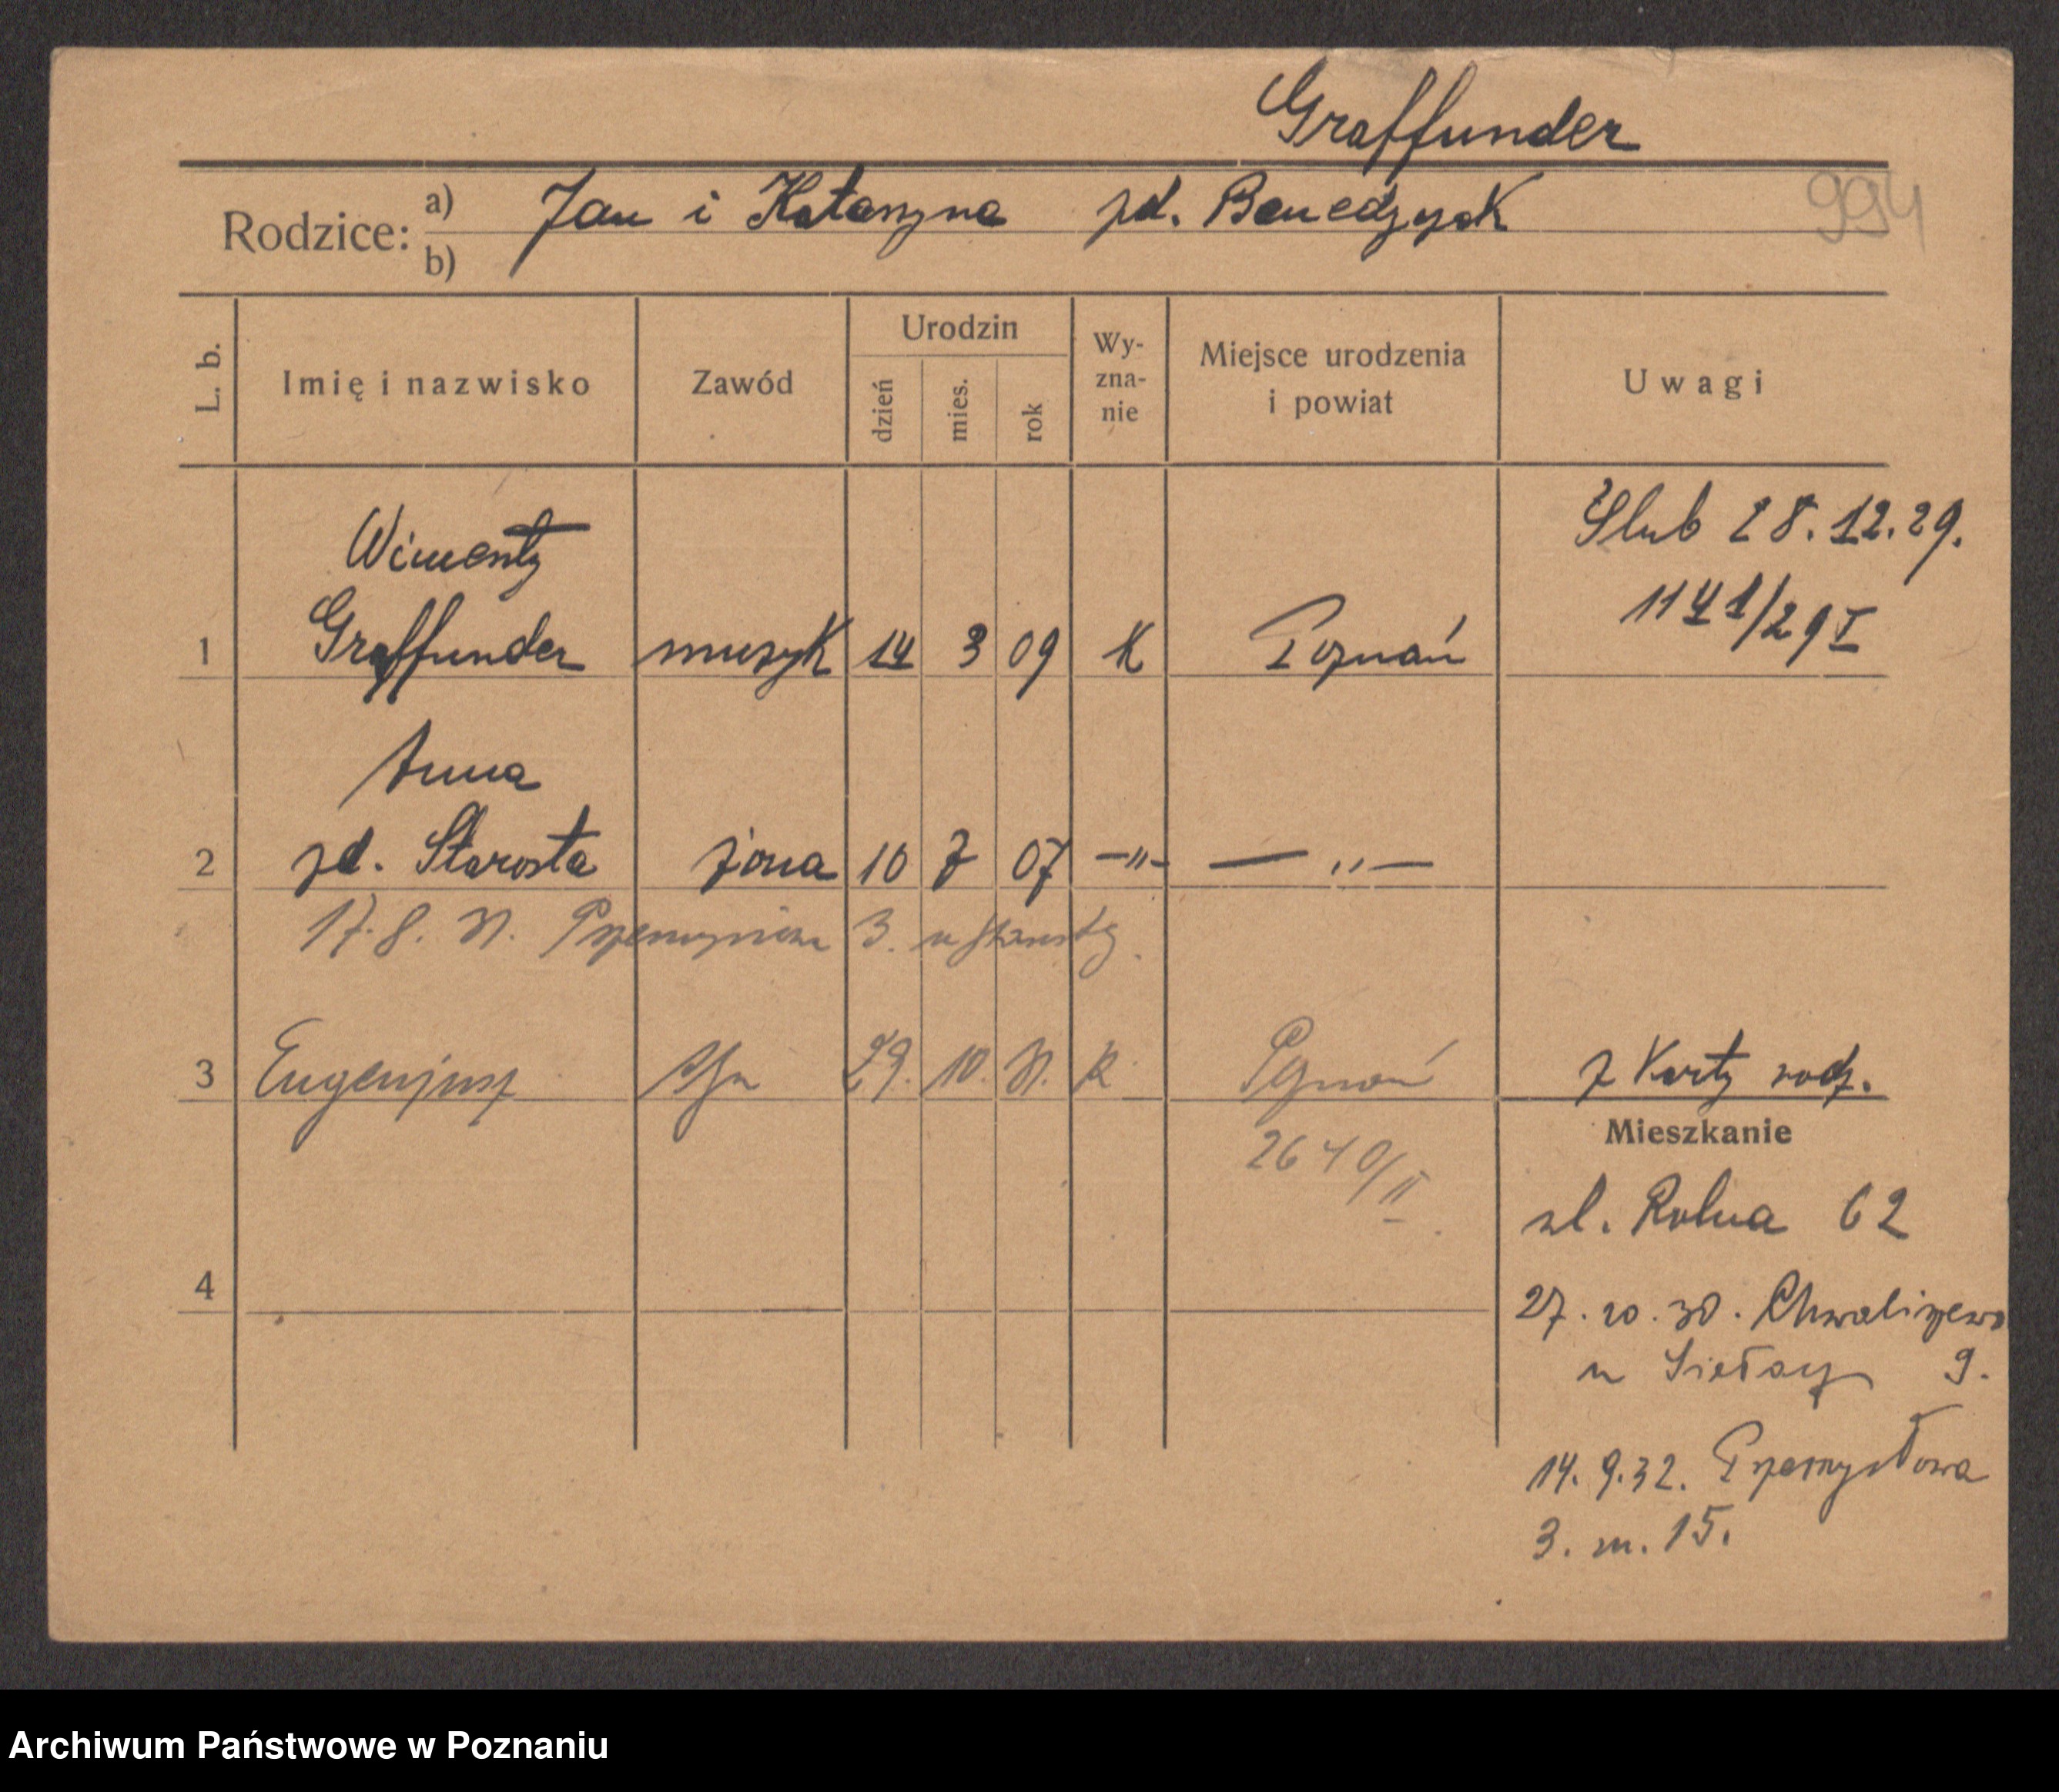 Graffunder
994
Rodzice: a) Jan i Katarzyna zd. Benedzyak
b)
L. b. Imię i nazwisko Zawód Urodzin dzień mies. rok Wy-zna-nie Miejsce urodzenia i powiat Uwagi
Ślub 28.12.29.
1141/29 I
Wincenty
1 Graffunder muzyk 14 3 09 K Poznań
Anna
2 zd. Starosta żona 10 7 07 —"— — " —
17.8. 31. 3. u Starosty.
3 Eugenjusz syn 29. 10. 31. K Poznań z Karty rodz.
2640/II
Mieszkanie
ul. Rolna 62
4
27.10.30. Chwaliszewo
u 9.
14.9.32. Przemysłowa
3. m. 15.
Archiwum Państwowe w Poznaniu